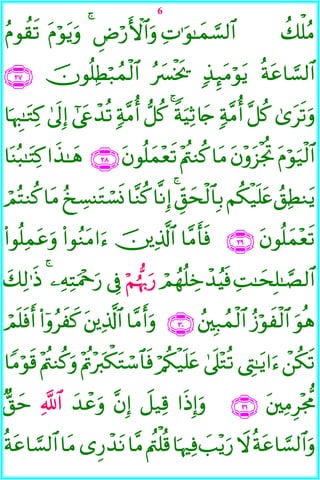 6
مُلْكُ ٱلسَّمَـٰوَٰتِ وَٱلْأَرْضِ ۚ وَيَوْمَ تَقُومُ
ٱلسَّاعَةُ يَوْمَئِذٍۢ يَخْسَرُ ٱلْمُبْطِلُونَ ٢٧
وَتَرَىٰ كُلَّ أُمَّةٍۢ جَاثِيَةًۭ ۚ كُلُّ أُمَّةٍۢ تُدْعَىٰٓ إِلَىٰ كِتَـٰبِهَا
ٱلْيَوْمَ تُجْزَوْنَ مَا كُنتُمْ تَعْمَلُونَ ٢٨ هَـٰذَا كِتَـٰبُنَا
يَنطِقُ عَلَيْكُم بِٱلْحَقِّ ۚ إِنَّا كُنَّا نَسْتَنسِخُ مَا كُنتُمْ
تَعْمَلُونَ ٢٩ فَأَمَّا ٱلَّذِينَ ءَامَنُوا۟ وَعَمِلُوا۟
ٱلصَّـٰلِحَـٰتِ فَيُدْخِلُهُمْ رَبُّهُمْ فِى رَحْمَتِهِۦ ۚ ذَٰلِكَ
هُوَ ٱلْفَوْزُ ٱلْمُبِينُ ٣٠ وَأَمَّا ٱلَّذِينَ كَفَرُوٓا۟ أَفَلَمْ
تَكُنْ ءَايَـٰتِى تُتْلَىٰ عَلَيْكُمْ فَٱسْتَكْبَرْتُمْ وَكُنتُمْ قَوْمًۭا
مُّجْرِمِينَ ٣١ وَإِذَا قِيلَ إِنَّ وَعْدَ ٱللَّهِ حَقٌّۭ
وَٱلسَّاعَةُ لَا رَيْبَ فِيهَا قُلْتُم مَّا نَدْرِى مَا ٱلسَّاعَةُ